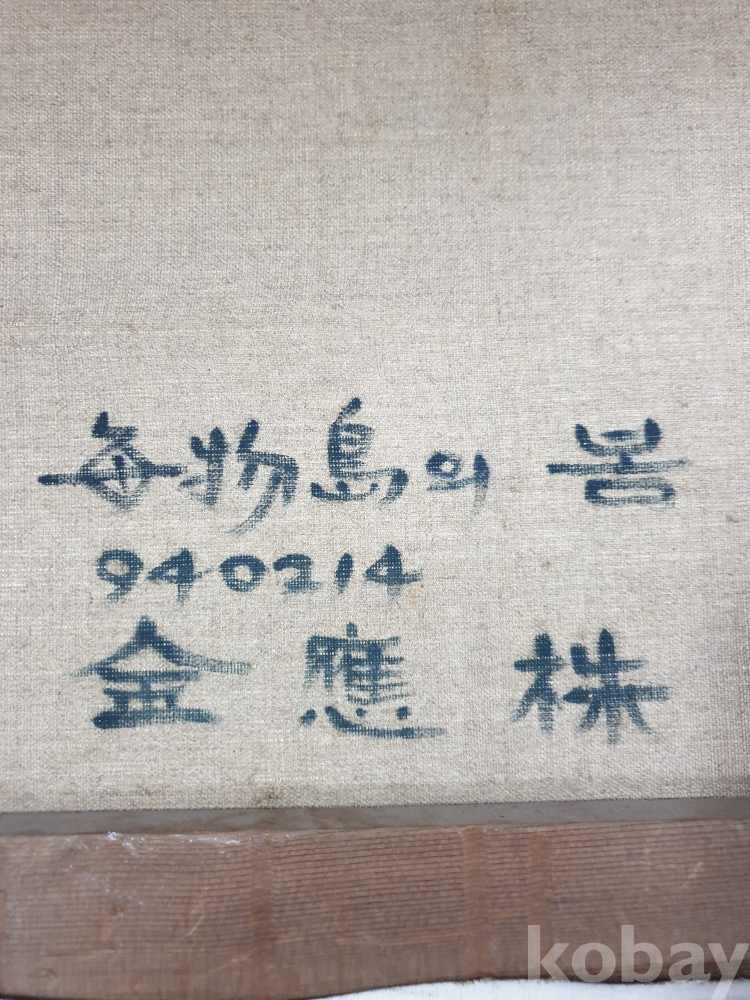 每物島의 봄
940214
金應株
kobay